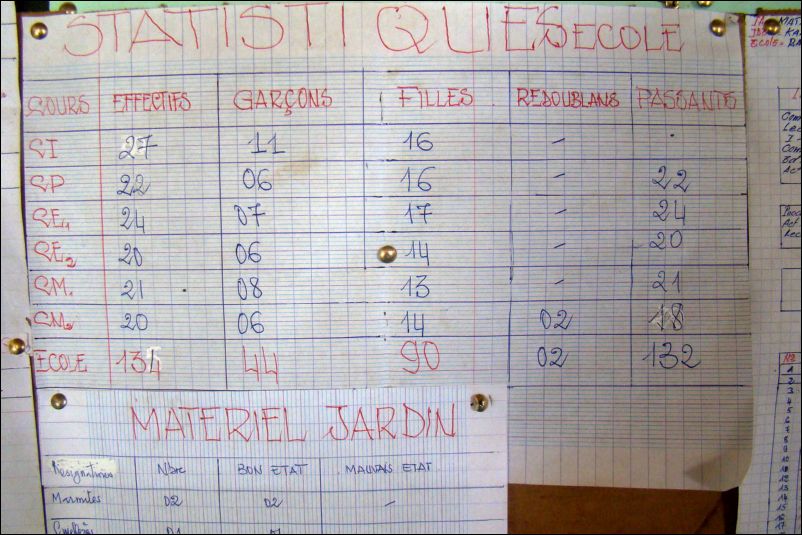 STATISTIQUES ECOLE
COURS EFFECTIFS GARÇONS FILLES REDOUBLANS PASSANTS
CI 27 11 16 - .
CP 22 06 16 - 22
CE1 24 07 17 - 24
CE2 20 06 14 - 20
CM1 21 08 13 - 21
CM2 20 06 14 02 18
ECOLE 134 44 90 02 132
MATERIEL JARDIN
Designations Nbre BON ETAT MAUVAIS ETAT
Marmites 02 02 -
1
2
3
4
5
6
7
8
9
10
11
12
13
14
15
16
17